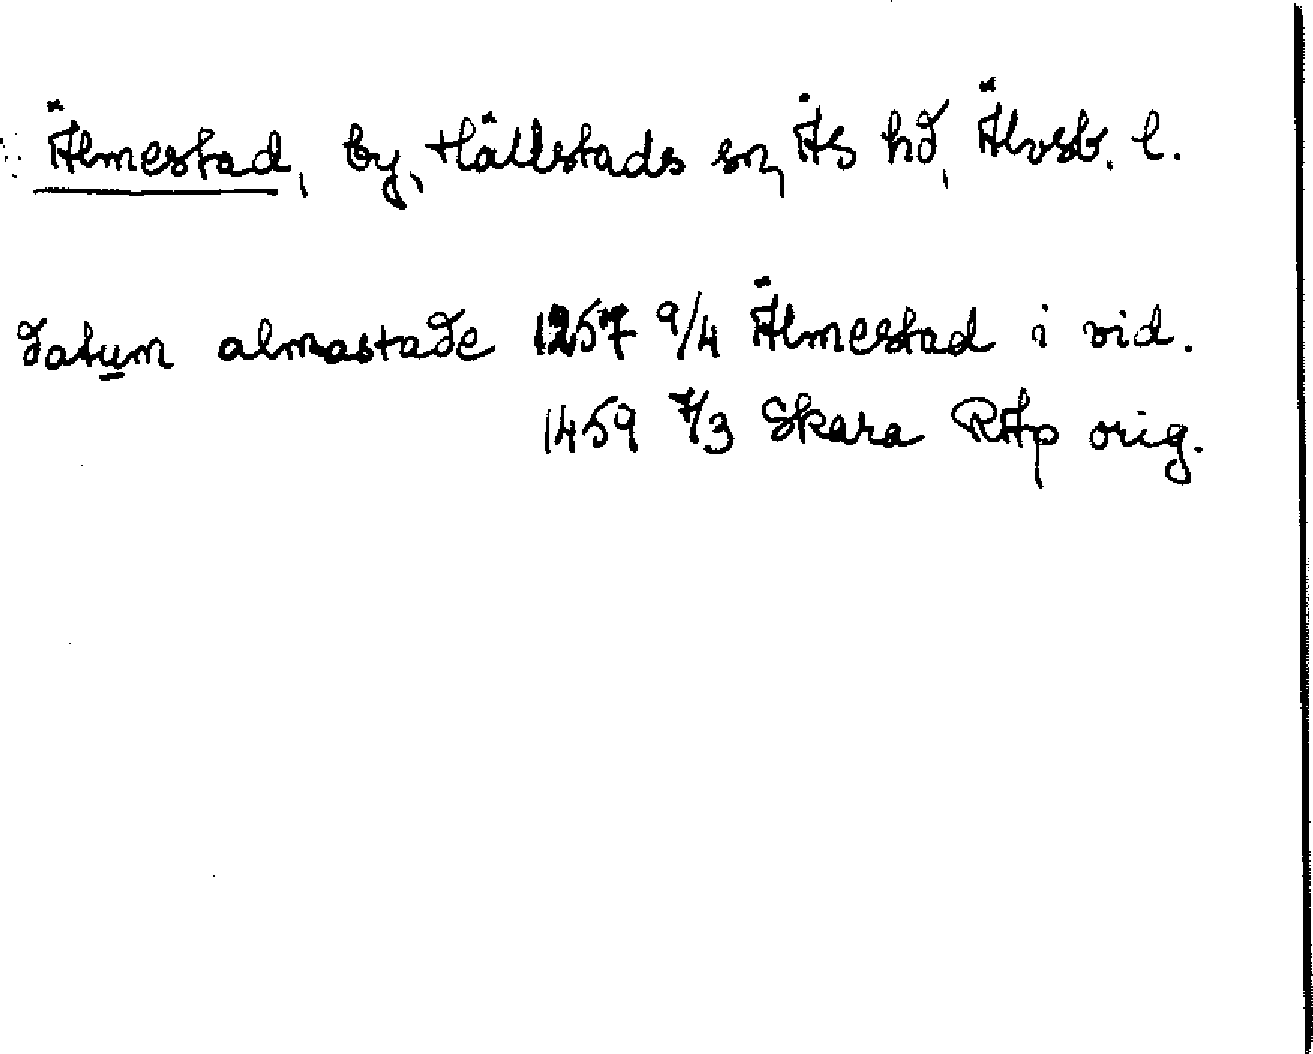 Älmestad, by, Hällstads sn, Ås hd, Älvsb. l.
datum almastade 1257 9/4 Älmestad i vid.
1459 7/3 Skara RAp orig.